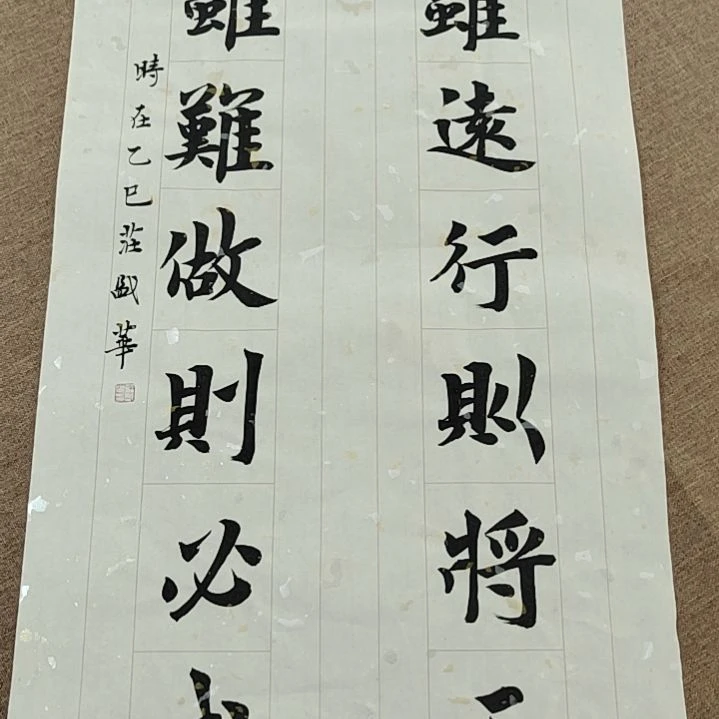 雖遠行則將
雖難做則必
時在乙巳莊盛華